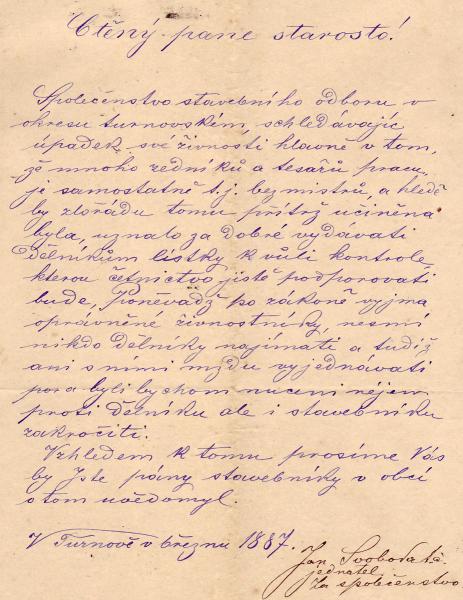 Ctěný pane starosto!
Společenstvo stavebního odboru v
okresu turnovském, schledávajíc
úpadek své živnosti hlavně v tom,
že mnoho zedníků a tesařů pracu„
je samostatně t.j. bez mistrů, a hledě
by zlořádu tomu přítrž učiněna
byla, uznalo za dobré vydávati
dělníkům lístky k vůli kontrole,
kterou četnictvo jistě podporovati
bude, Poněvadž po zákoně vyjma
oprávněné živnostníky, nesmí
nikdo dělníky najímati a tudíž
ani s nimi mzdu vyjednávati
byli bychom nuceni nejen
proti dělníku ale i stavebníku
zakročiti.
Vzhledem k tomu prosíme Vás
by Jste pány stavebníky v obci
o tom uvědomyl.
V Turnově v březnu 1887.
Jan Svoboda
jednatel
za společenstvo